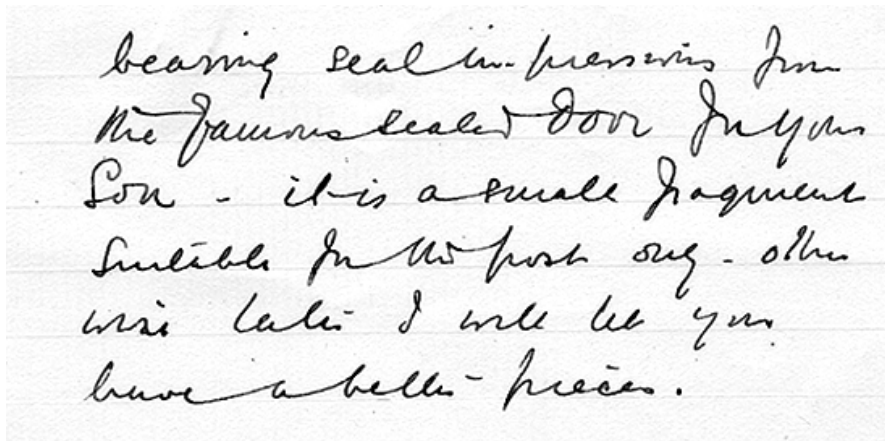 bearing seal im-pressions from
the famous sealed door for your
Son - it is a small fragment
suitable for the post only - other
wise later I will let you
have a better piece.